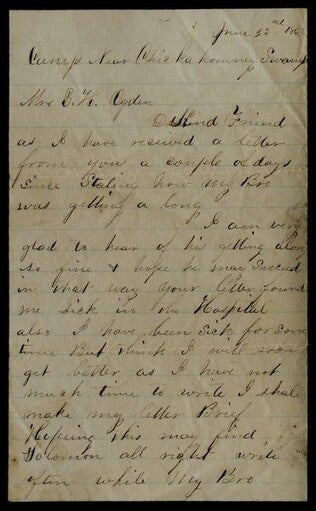 June 23rd 186
Camp Near Chickahominy Swamp
Mrs E. K. Ogden
Kind Friend
as I have received a letter
from you a couple of days
since Stating how My Bro
was getting a long
I am very
glad to hear of his getting along
so fine & hope he may Succeed
in that way your letter found
me Sick in the Hospital
also I have been Sick for Some
time But think I will soon
get better as I have not
much time to write I shall
make my letter Brief
Hopeing this may find
Solomon all right write
often while My Bro